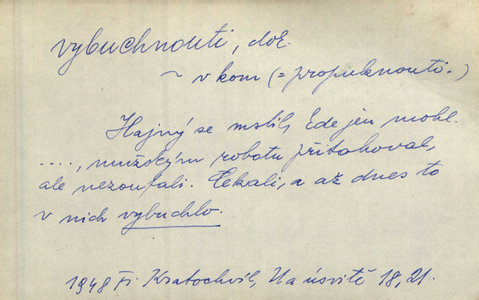 vybuchnouti, dok.
~ v kom (= propuknouti.)
Hajný se mstil, kde jen mohl.
...., mužským robotu přitahoval,
ale nezoufali. Čekali, a až dnes to
v nich vybuchlo.
1948 Fr. Kratochvíl, Na úsvitě 18, 21.